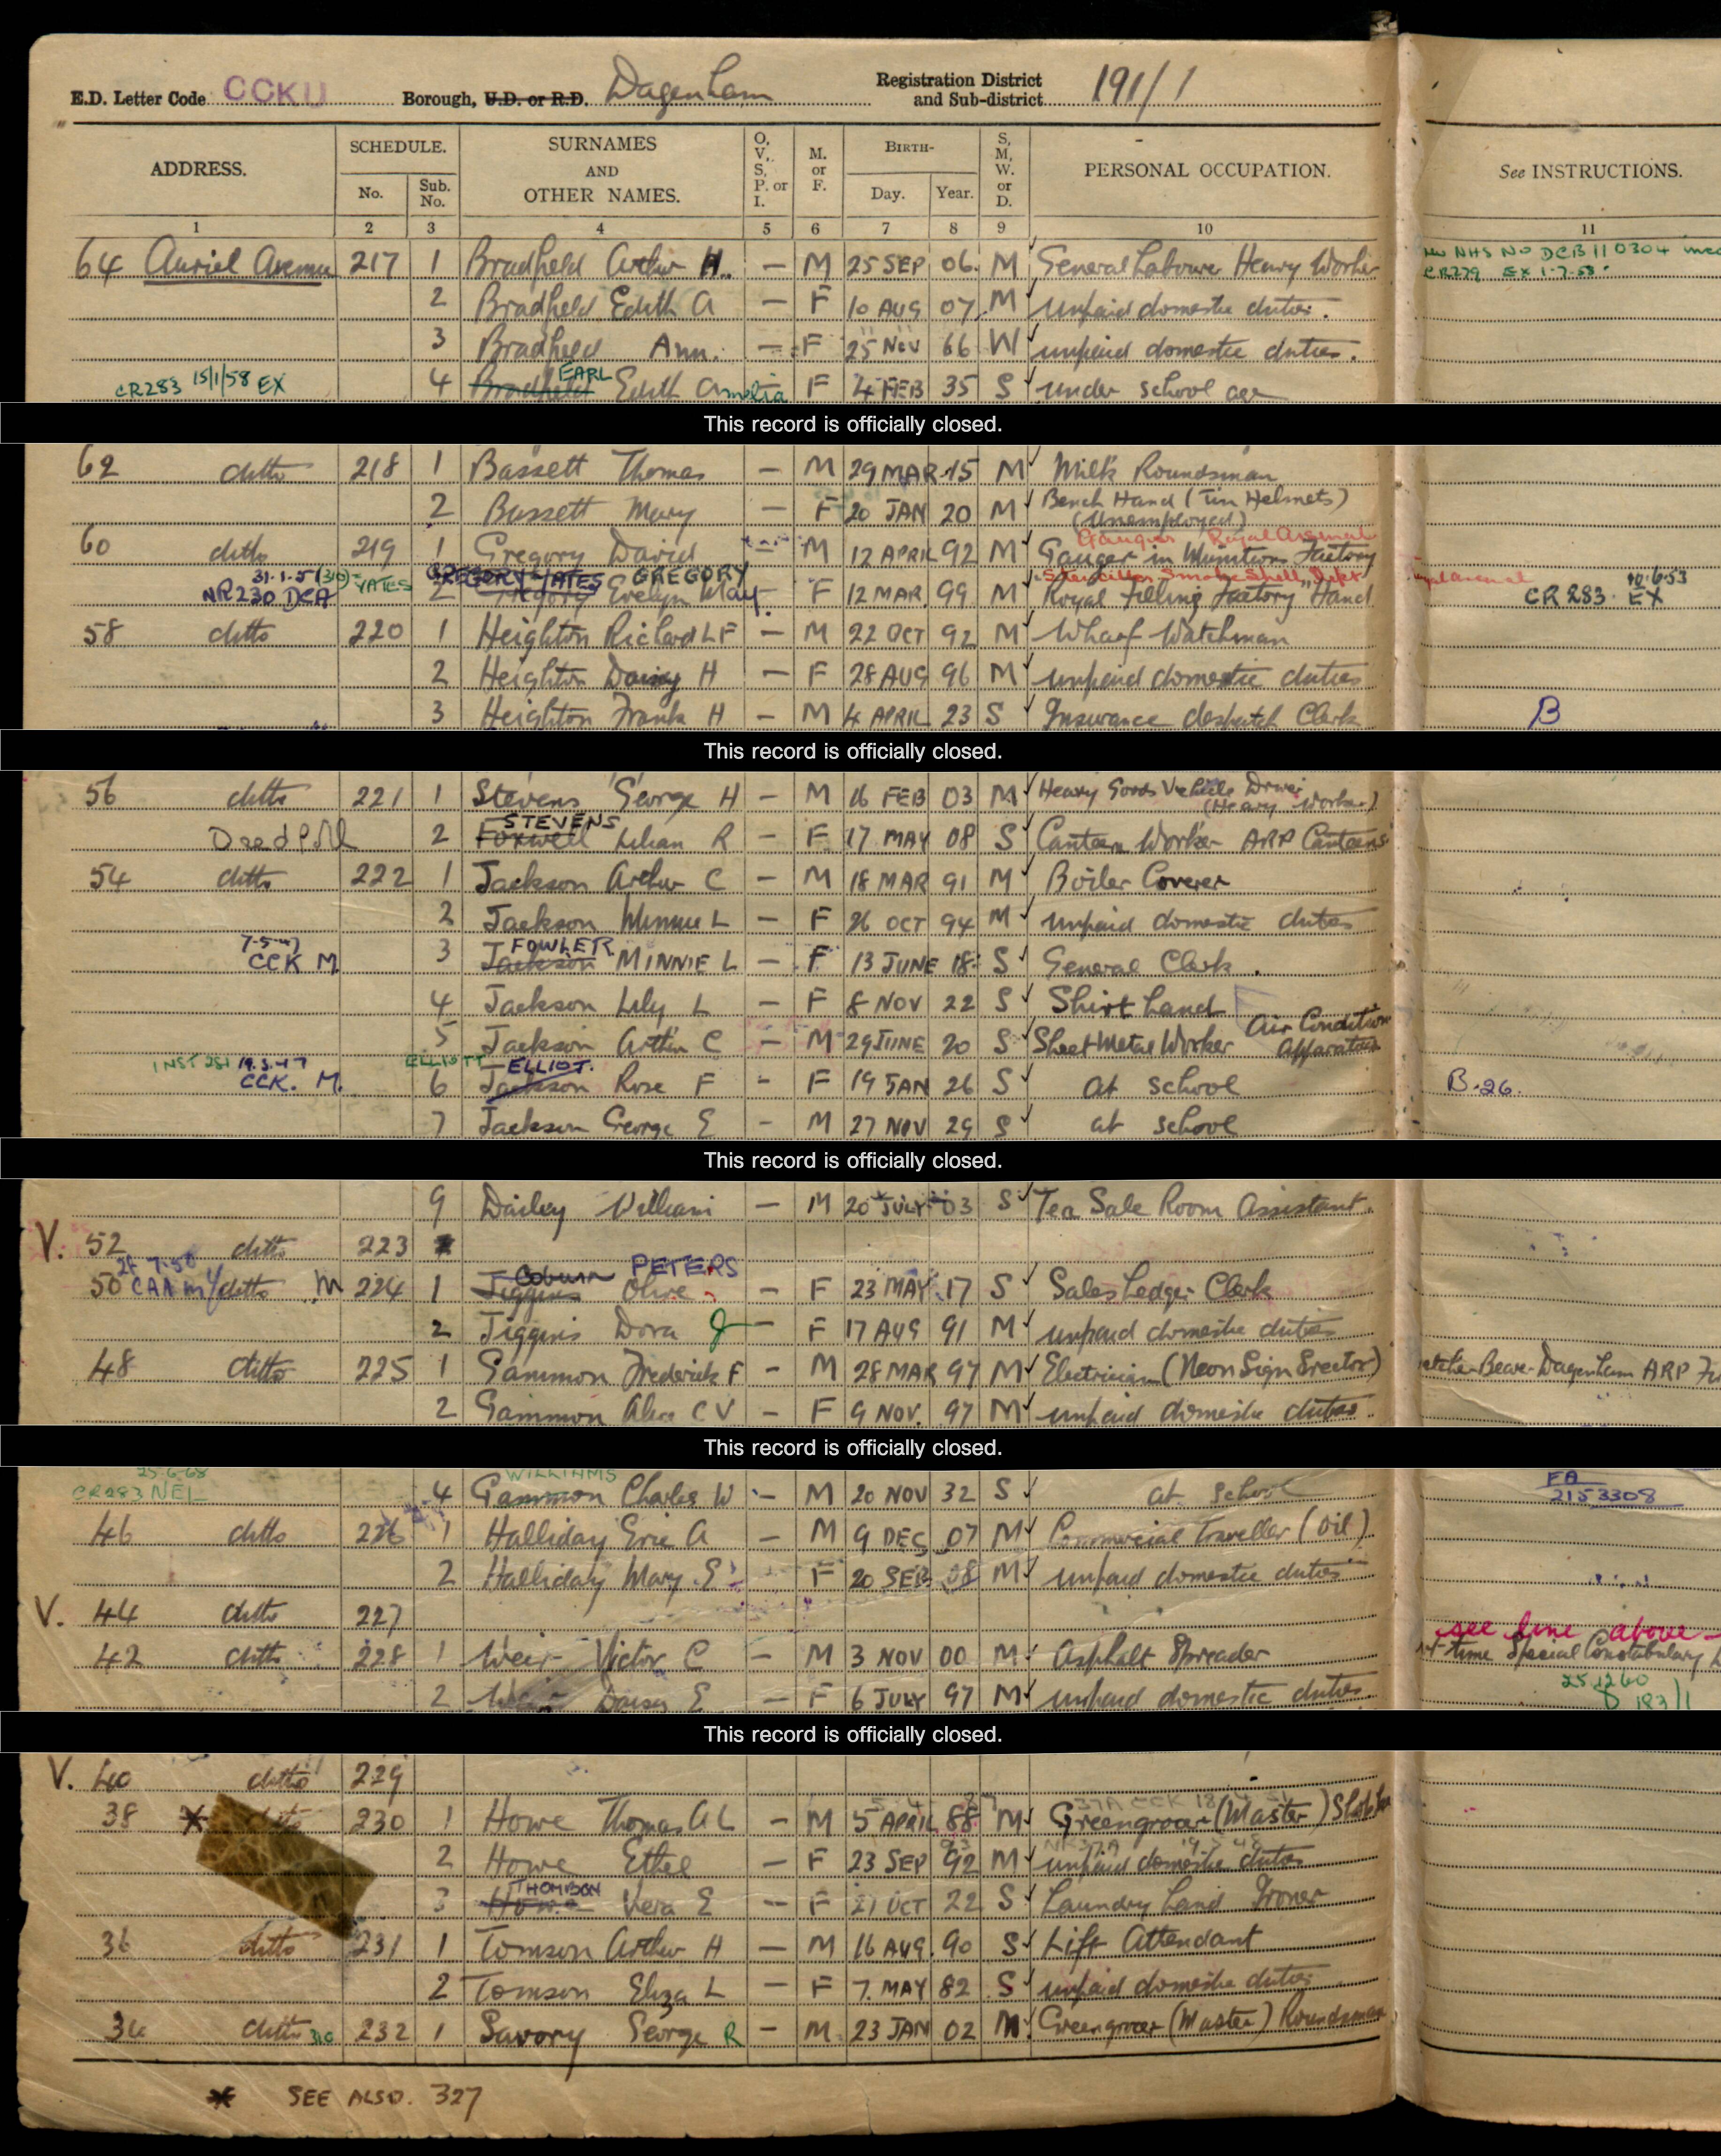 E.D. Letter Code CCKU Borough, U.D. or R.D. Dagenham Registration District and Sub-district 191/1
ADDRESS. SCHEDULE. No. Sub. No. SURNAMES AND OTHER NAMES. O, V, S, P. or I. M. or F. BIRTH- Day. Year. S, M, W. or D. PERSONAL OCCUPATION. See INSTRUCTIONS.
1 2 3 4 5 6 7 8 9 10 11
64 Auriel Avenue 217 1 Bradfield Arthur H. — M 25 SEP 06 M General Labourer Heavy Worker NHS NO DCB 110304
CR279 EX 1-7-58
2 Bradfield Edith A — F 10 AUG 07 M unpaid domestic duties.
3 Bradfield Ann. — F 25 NOV 66 W unpaid domestic duties.
CR283 15/1/58 EX 4 Bradfield EARL Edith Amelia F 4 FEB 35 S under school age
This record is officially closed.
62 ditto 218 1 Bassett Thomas — M 29 MAR 15 M Milk Roundsman
2 Bassett Mary — F 20 JAN 20 M Bench Hand (Tin Helmets) (Unemployed)
Gauger Royal Arsenal
60 ditto 219 1 Gregory David — M 12 APRIL 92 M Gauger in Munition Factory
31-1-51 (310) YATES GREGORY YATES GREGORY Smoke Shell
NR230 DCA 2 Gregory Evelyn May. F 12 MAR. 99 M Royal Filling Factory Hand CR 283 EX 10.6.53
58 ditto 220 1 Heighton Richard L F — M 22 OCT 92 M Wharf Watchman
2 Heighton Daisy H — F 28 AUG 96 M unpaid domestic duties
3 Heighton Frank H — M 4 APRIL 23 S Insurance despatch Clerk B
This record is officially closed.
56 ditto 221 1 Stevens George H — M 16 FEB 03 M Heavy Goods Vehicle Driver (Heavy Worker)
Deed Poll 2 Foxwell STEVENS Lilian R — F 17 MAY 08 S Canteen Worker ARP Canteens
54 ditto 222 1 Jackson Arthur C — M 18 MAR 91 M Boiler Coverer
2 Jackson Minnie L — F 26 OCT 94 M unpaid domestic duties
7-5-47 CCK M 3 Jackson FOWLER MINNIE L — F 13 JUNE 18 S General Clerk.
4 Jackson Lily L — F 8 NOV 22 S Shirt hand
5 Jackson Arthur C — M 29 JUNE 20 S Sheet Metal Worker Air Condition Apparatus
INST 281 19.3.47 ELLIOTT ELLIOT.
CCK. M. 6 Jackson Rose F - F 19 JAN 26 S at school B.26.
7 Jackson George E - M 27 NOV 29 S at school
This record is officially closed.
9 Dailey William — M 20 JULY 03 S Tea Sale Room Assistant.
V. 52 ditto 223
Coburn PETERS
50 ditto M 224 1 Jiggins Olive — F 23 MAY 17 S Sales Ledger Clerk
2 Jiggins Dora J — F 17 AUG 91 M unpaid domestic duties
48 ditto 225 1 Gammon Frederick F - M 28 MAR 97 M Electrician (Neon Sign Erector) Dagenham ARP
2 Gammon Alice C V — F 9 NOV. 97 M unpaid domestic duties.
This record is officially closed.
25-6-68 WILLIAMS
CR283 NEL 4 Gammon Charles W — M 20 NOV 32 S at school EA 2153308
46 ditto 226 1 Halliday Eric A — M 9 DEC 07 M Commercial Traveller (Oil)
2 Halliday Mary E — F 20 SEP 08 M unpaid domestic duties
V. 44 ditto 227
see line above
42 ditto 228 1 Weir Victor C — M 3 NOV 00 M Asphalt Spreader time Special Constabulary
2 Weir Daisy E — F 6 JULY 97 M unpaid domestic duties. 25.12.60 D 183/1
This record is officially closed.
V. 40 ditto 229
38 * ditto 230 1 Howe Thomas A L — M 5 APRIL 88 M Greengrocer (Master)
2 Howe Ethel — F 23 SEP 92 M unpaid domestic duties
3 Howe THOMSON Vera E — F 21 OCT 22 S Laundry hand Ironer
36 ditto 231 1 Tomson Arthur H — M 16 AUG. 90 S Lift Attendant
2 Tomson Eliza L — F 7. MAY 82 S unpaid domestic duties
ditto 232 1 Savory George R — M 23 JAN 02 M Greengrocer (Master) Roundsman
* SEE ALSO. 327